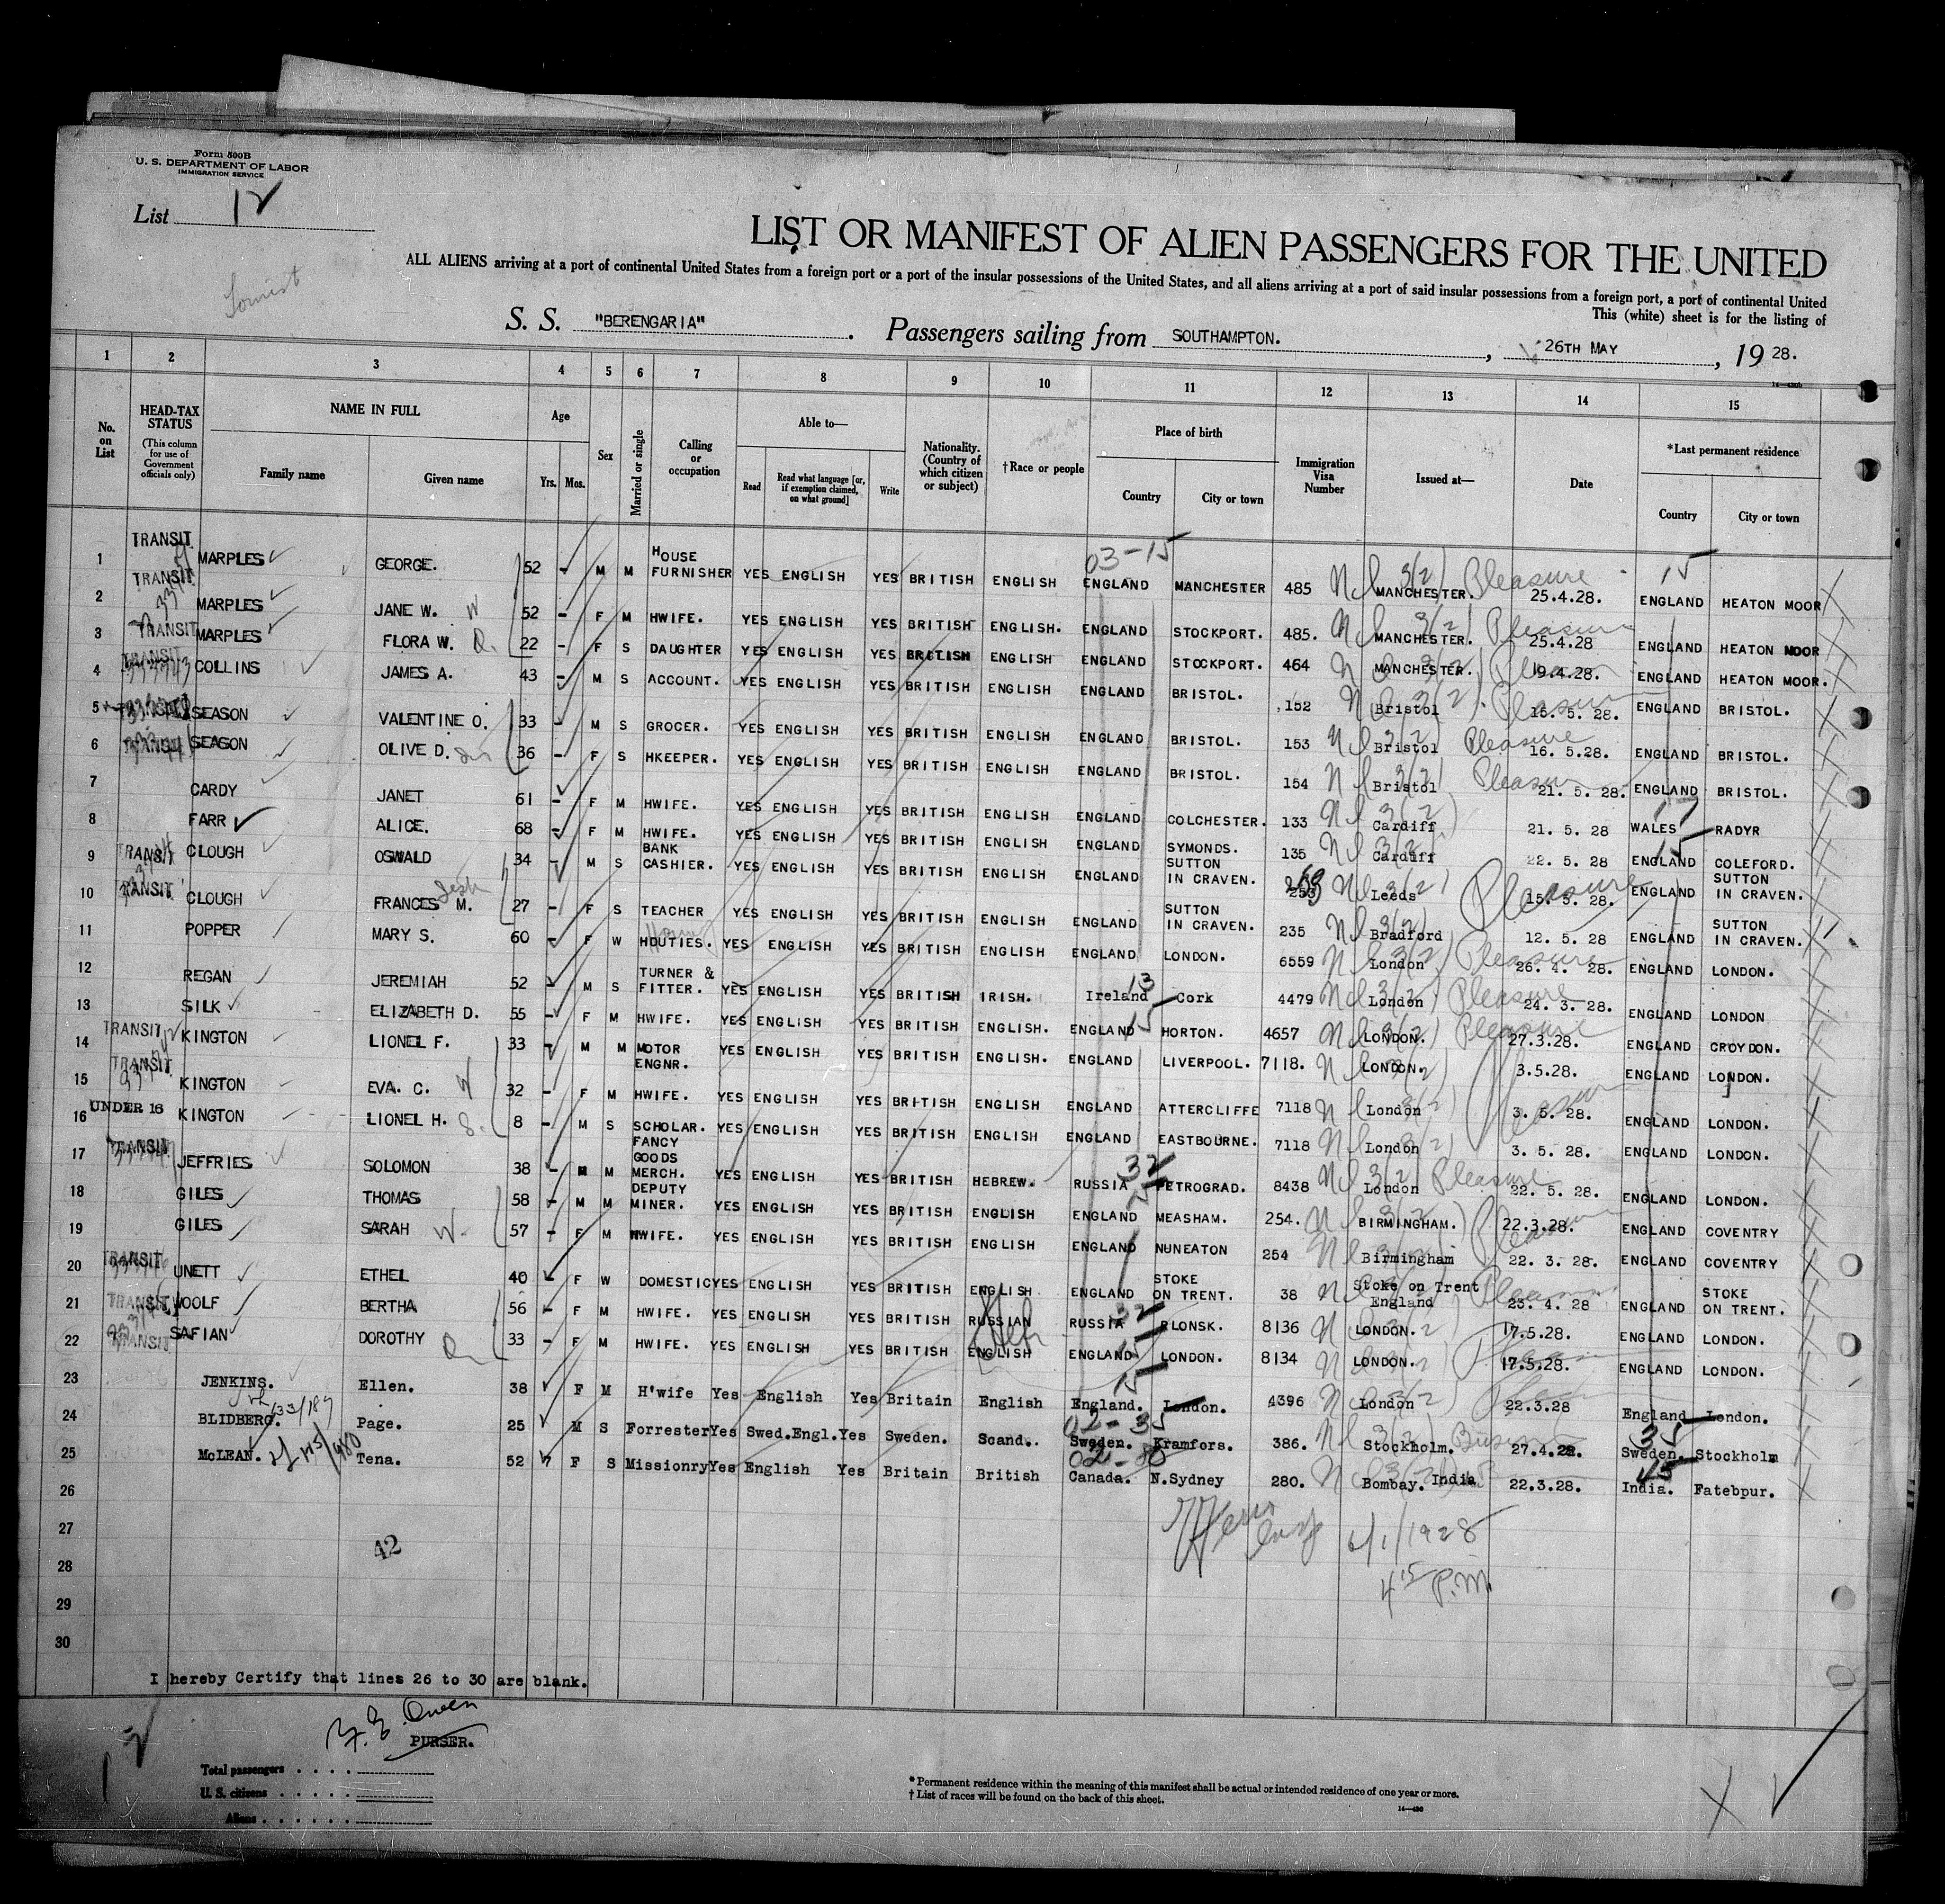 Form 500B
U. S. DEPARTMENT OF LABOR
IMMIGRATION SERVICE
List 12
LIST OR MANIFEST OF ALIEN PASSENGERS FOR THE UNITED
ALL ALIENS arriving at a port of continental United States from a foreign port or a port of the insular possessions of the United States, and all aliens arriving at a port of said insular possessions from a foreign port, a port of continental United
This (white) sheet is for the listing of
Tourist
S. S. "BERENGARIA". Passengers sailing from SOUTHAMPTON. , 26TH MAY , 19 28.
1 2 3 4 5 6 7 8 9 10 11 12 13 14 15
No. on List
HEAD-TAX STATUS (This column for use of Government officials only)
NAME IN FULL Family name Given name
Age Yrs. Mos.
Sex
Married or single
Calling or occupation
Able to— Read Read what language [or, if exemption claimed, on what ground] Write
Nationality. (Country of which citizen or subject)
†Race or people
Place of birth Country City or town
Immigration Visa Number
Issued at—
Date
*Last permanent residence Country City or town
03-15 15
1 TRANSIT MARPLES GEORGE. 52 - M M HOUSE FURNISHER YES ENGLISH YES BRITISH ENGLISH ENGLAND MANCHESTER 485 MANCHESTER. Pleasure 25.4.28. ENGLAND HEATON MOOR
2 TRANSIT MARPLES JANE W. W 52 - F M HWIFE. YES ENGLISH YES BRITISH ENGLISH. ENGLAND STOCKPORT. 485. MANCHESTER. Pleasure 25.4.28 ENGLAND HEATON MOOR
3 TRANSIT MARPLES FLORA W. D. 22 - F S DAUGHTER YES ENGLISH YES BRITISH ENGLISH ENGLAND STOCKPORT. 464 MANCHESTER. 19.4.28. ENGLAND HEATON MOOR.
4 TRANSIT COLLINS JAMES A. 43 - M S ACCOUNT. YES ENGLISH YES BRITISH ENGLISH ENGLAND BRISTOL. 152 Bristol 15. 5. 28. ENGLAND BRISTOL.
5 SEASON VALENTINE O. 33 - M S GROCER. YES ENGLISH YES BRITISH ENGLISH ENGLAND BRISTOL. 153 Bristol Pleasure 16. 5.28. ENGLAND BRISTOL.
6 TRANSIT SEASON OLIVE D. 36 - F S HKEEPER. YES ENGLISH YES BRITISH ENGLISH ENGLAND BRISTOL. 154 Bristol 21. 5. 28. ENGLAND BRISTOL.
7 CARDY JANET 61 - F M HWIFE. YES ENGLISH YES BRITISH ENGLISH ENGLAND COLCHESTER. 133 Cardiff 21. 5. 28 WALES RADYR
8 FARR ALICE. 68 - F M HWIFE. YES ENGLISH YES BRITISH ENGLISH ENGLAND SYMONDS. 135 Cardiff 22. 5. 28 ENGLAND COLEFORD.
9 TRANSIT CLOUGH OSWALD 34 - M S BANK CASHIER. YES ENGLISH YES BRITISH ENGLISH ENGLAND SUTTON IN CRAVEN. Leeds Pleasure 15. 5. 28. ENGLAND SUTTON IN CRAVEN.
10 TRANSIT CLOUGH FRANCES M. 27 - F S TEACHER YES ENGLISH YES BRITISH ENGLISH ENGLAND SUTTON IN CRAVEN. 235 Bradford 12. 5. 28 ENGLAND SUTTON IN CRAVEN.
11 POPPER MARY S. 60 - F W HDUTIES. YES ENGLISH YES BRITISH ENGLISH ENGLAND LONDON. 6559 London Pleasure 26. 4. 28. ENGLAND LONDON.
12 REGAN JEREMIAH 52 - M S TURNER & FITTER. YES ENGLISH YES BRITISH IRISH. Ireland 13 Cork 4479 London Pleasure 24. 3. 28. ENGLAND LONDON
13 SILK ELIZABETH D. 55 - F M HWIFE. YES ENGLISH YES BRITISH ENGLISH. ENGLAND 15 HORTON. 4657 LONDON. Pleasure 27.3.28. ENGLAND CROYDON.
14 TRANSIT KINGTON LIONEL F. 33 - M M MOTOR ENGNR. YES ENGLISH YES BRITISH ENGLISH. ENGLAND LIVERPOOL. 7118. LONDON. 3.5.28. ENGLAND LONDON.
15 TRANSIT KINGTON EVA. C. W 32 - F M HWIFE. YES ENGLISH YES BRITISH ENGLISH ENGLAND ATTERCLIFFE 7118 London 3. 5. 28. ENGLAND LONDON.
16 UNDER 16 KINGTON LIONEL H. S. 8 - M S SCHOLAR. YES ENGLISH YES BRITISH ENGLISH ENGLAND EASTBOURNE. 7118 London 3. 5. 28. ENGLAND LONDON.
17 TRANSIT JEFFRIES SOLOMON 38 - M M FANCY GOODS MERCH. YES ENGLISH YES BRITISH HEBREW. RUSSIA 32 PETROGRAD. 8438 London Pleasure 22. 5. 28. ENGLAND LONDON.
18 GILES THOMAS 58 - M M DEPUTY MINER. YES ENGLISH YES BRITISH ENGLISH ENGLAND MEASHAM. 254. BIRMINGHAM. 22.3.28. ENGLAND COVENTRY
19 GILES SARAH W. 57 - F M WIFE. YES ENGLISH YES BRITISH ENGLISH ENGLAND NUNEATON 254 Birmingham 22. 3. 28. ENGLAND COVENTRY
20 TRANSIT UNETT ETHEL 40 - F W DOMESTIC YES ENGLISH YES BRITISH ENGLISH ENGLAND STOKE ON TRENT. 38 Stoke on Trent England 23. 4. 28 ENGLAND STOKE ON TRENT.
21 TRANSIT WOOLF BERTHA 56 - F M HWIFE. YES ENGLISH YES BRITISH RUSSIAN Heb RUSSIA 32 PLONSK. 8136 LONDON. 17.5.28. ENGLAND LONDON.
22 TRANSIT SAFIAN DOROTHY D 33 - F M HWIFE. YES ENGLISH YES BRITISH ENGLISH ENGLAND 15 LONDON. 8134 LONDON. 17.5.28. ENGLAND LONDON.
23 JENKINS. Ellen. 38 F M H'wife Yes English Yes Britain English England. 15 London. 4396 London 22.3.28 England London.
24 BLIDBERG. Page. 25 M S Forrester Yes Swed.Engl. Yes Sweden. Scand. 02-35 Sweden. Kramfors. 386. Stockholm. 27.4.28. Sweden. 35 Stockholm
25 McLEAN. Tena. 52 F S Missionry Yes English Yes Britain British Canada. N.Sydney 280. Bombay. India 22.3.28. India. Fatebpur.
26
27
28
29
30
42
6/1/1928
4 15 P.M.
I hereby Certify that lines 26 to 30 are blank.
Owen
PURSER.
Total passengers . . . .
U. S. citizens . . . . .
Aliens . . . . . .
* Permanent residence within the meaning of this manifest shall be actual or intended residence of one year or more.
† List of races will be found on the back of this sheet.